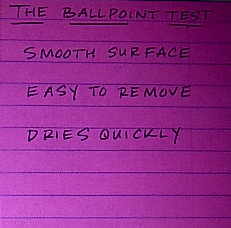 THE BALLPOINT TEST
SMOOTH SURFACE
EASY TO REMOVE
DRIES QUICKLY